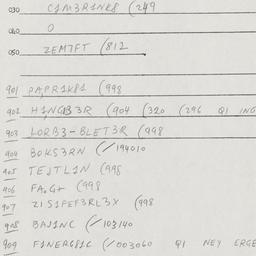 030 C1M3R1NK8 (249
040 0
050 ZEM7FT (812
901 PAPR1K81 (998
902 H1NGB3R (904 (320 (296 Q1 ING
903 LORB3-BLET3R (998
904 BOKS3RN (/194010
905 TEJTL1N (998
906 FA.G+ (998
907 Z1S1FEF3RL3X (998
908 BAJ1NC (/103140
909 F1NER681C (/003060 Q1 NEY ERGE